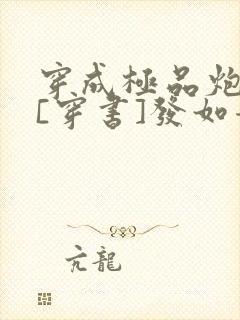 穿成極品炮
[穿書]發如
亢龍